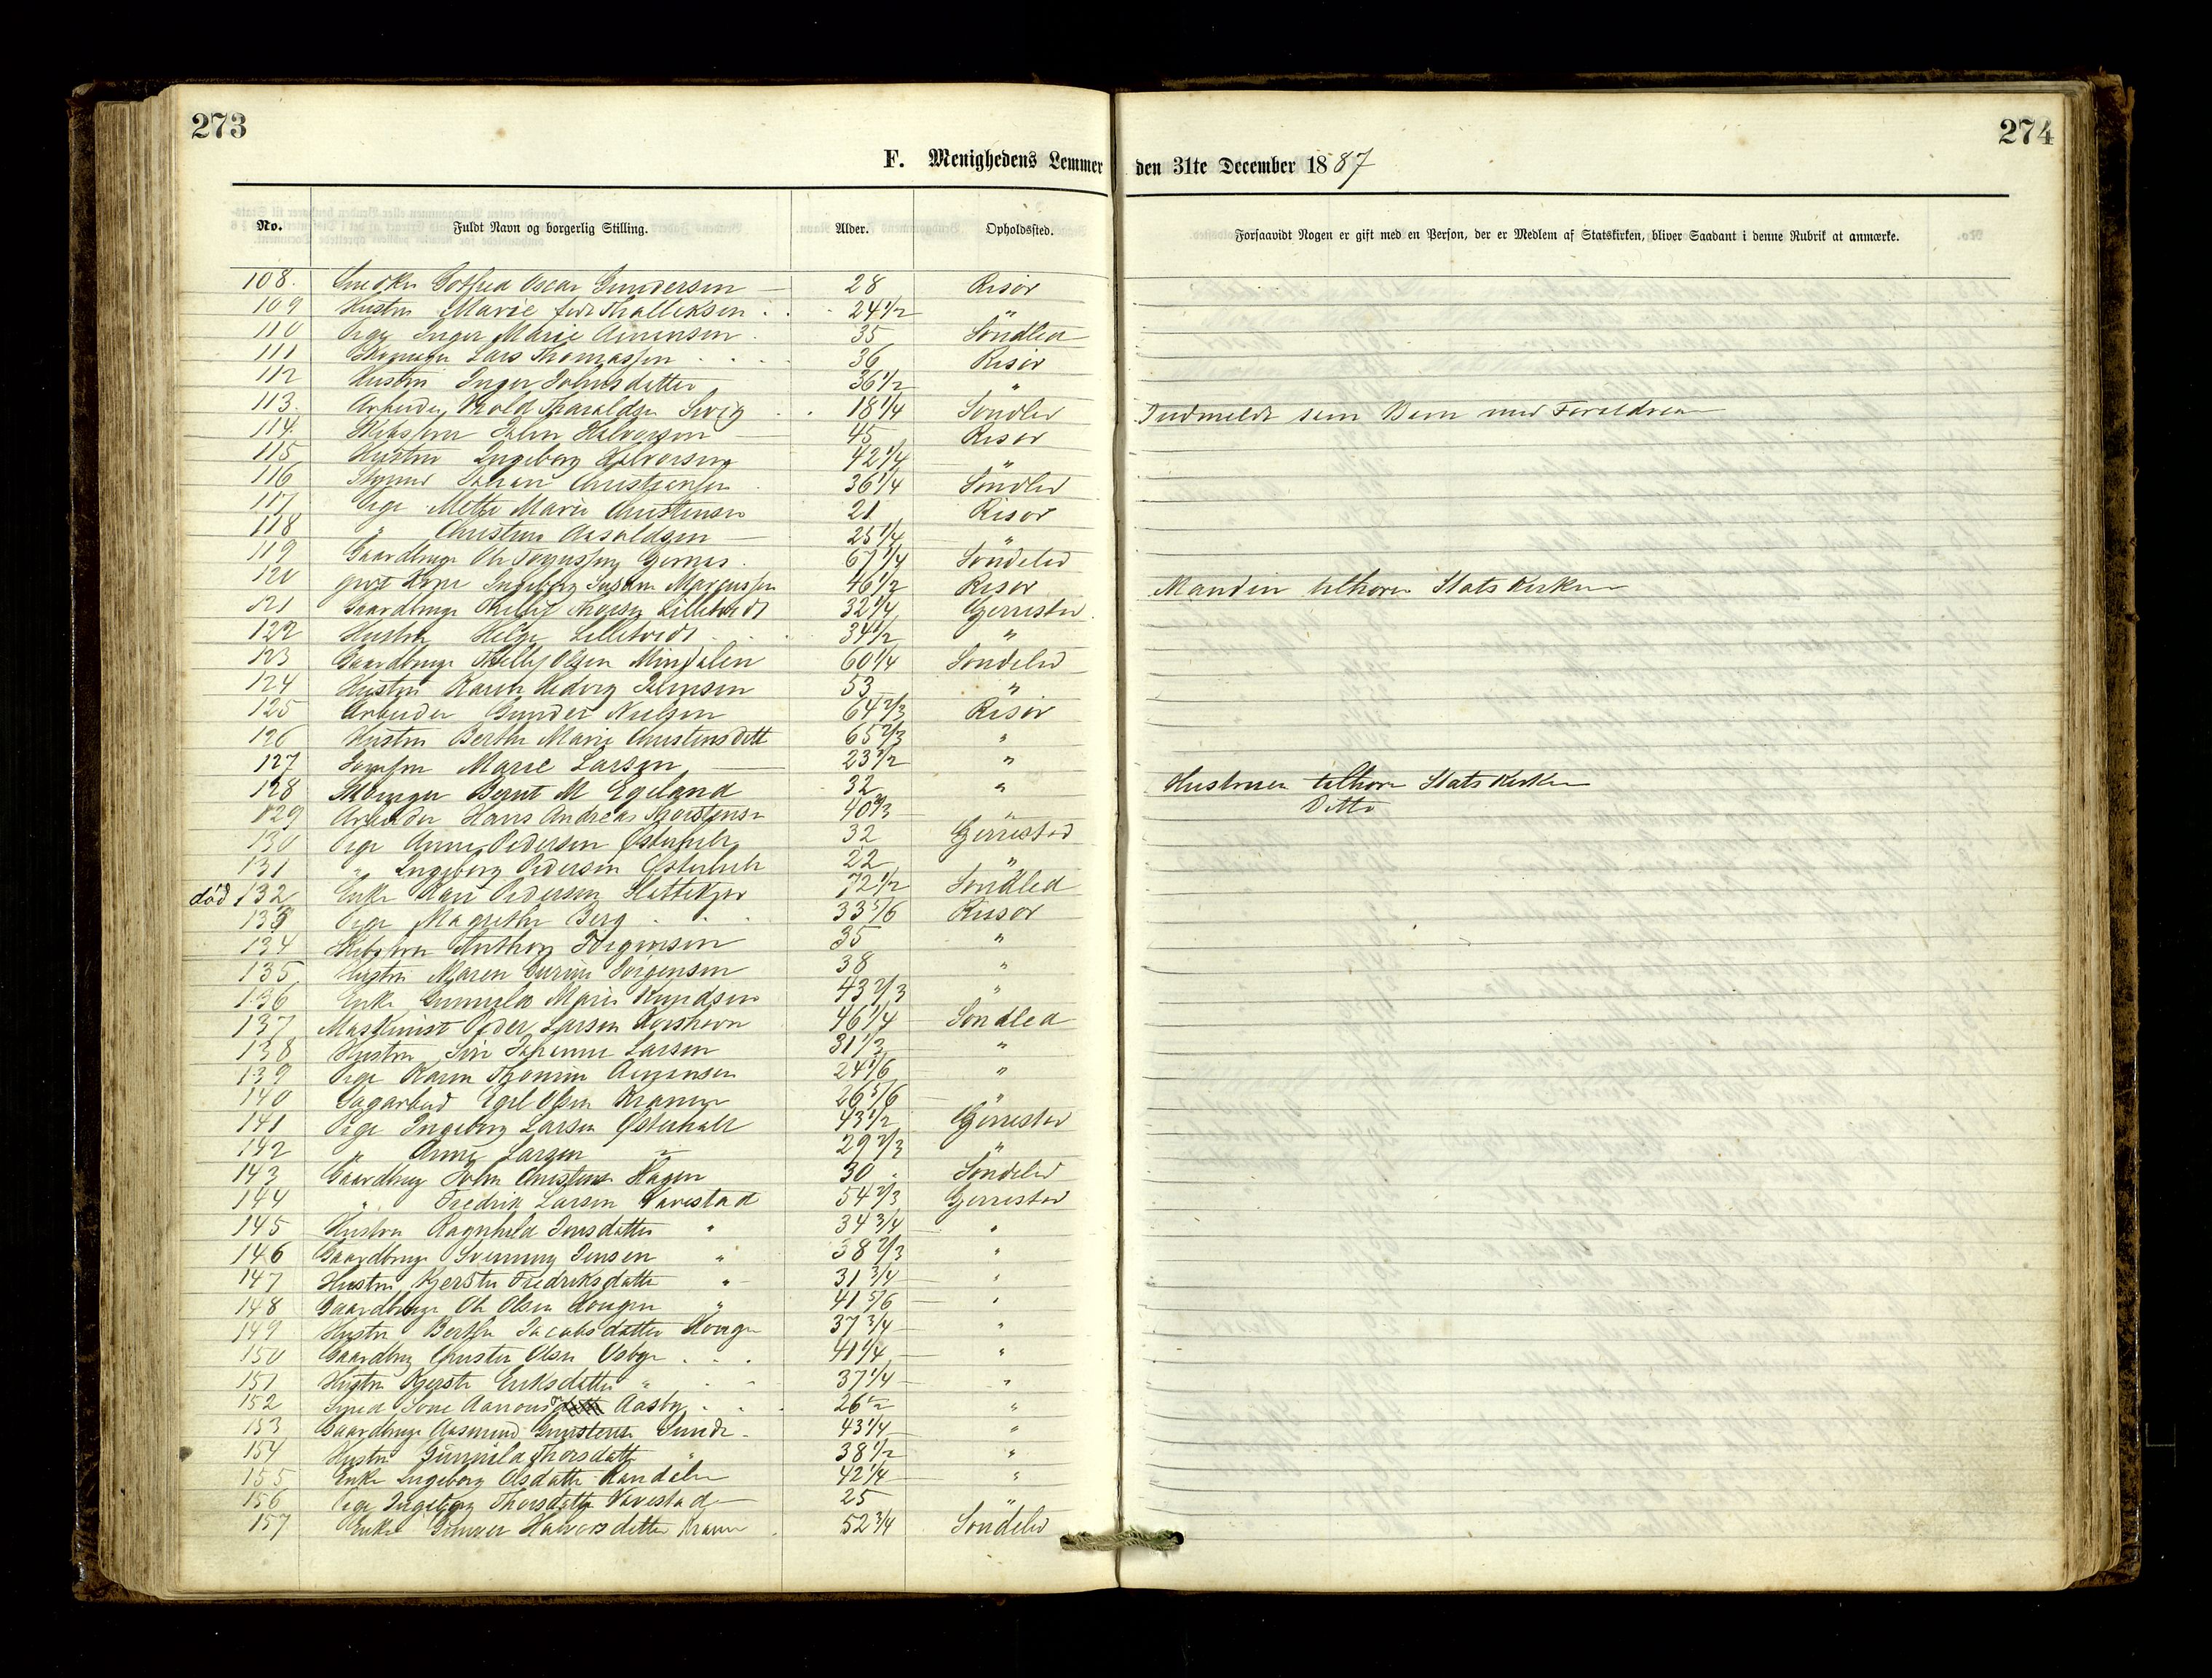 273
274
F. Menighedens Lemmer den 31te December 1887
No. Fuldt Navn og borgerlig Stilling. Alder. Opholdssted. Forsaavidt Nogen er gift med en Person, der er Medlem af Statskirken, bliver Saadant i denne Rubrik at anmærke.
108. Snedker Gotfred Oscar Gundersen 28 Risör
109 Hustru Marie född Thalleksen 24 1/2 "
110 Pige Inger Marie Aanonsen 35 Söndled
111 Lars Thomassen 36 Risör
112 Hustru Inger Johnsdatter 36 1/2 "
113. Arbeider Tharaldsen 18 1/4 Söndled Indmeldt som Barn med Foreldrene
114. John Halvorsen 45 Risör
115 Hustru Ingeborg Halvorsen 42 1/4 "
116 Johan Christjansen 36 1/4 Söndled
117 Pige Mette Marie Christensen 21 Risör
118 " Christine Aasoldsen 25 1/4 "
119 Gaardbruger Ole 67 1/4 Söndeled
120 givt Kone Ingeborg Susan Marcussen 46 1/2 Risör Manden tilhörer Stats Kirken
121 Gaardbruger Lilletvedt 32 1/4 Gjerrestad
122 Hustru Helge Lilletvedt 34 1/2 "
123 Gaardbruger Thellef Olsen Mindalen 60 1/4 Söndeled
124 Hustru Karen Hedvig Jensen 53 "
125 Arbeider Gunder Nielsen 64 2/3 Risör
126 Hustru Berthe Marie Christensdatt 65 2/3 "
127 Jomfru Marie Larsen 23 1/2 "
128 Bernt M Egeland 32 " Hustruen tilhörer Stats Kirken
129 Arbeider Hans Andreas 40 2/3 " Ditto
130 Pige Anne Pedersen Østerholt 32 Gjerrestad
131 " Ingeborg Pedersen Østerholt 22 "
död 132 Enke Kari Pedersen 72 1/2 Söndled
133 Pige Magrethe Berg 33 5/6 Riisör
134 Anthon Jörgensen 35 "
135 Hustru Maren Jörgensen 38 "
136 Enke Gunnild Marie Knudsen 43 2/3 "
137 Maskinist Peder Larsen 46 1/4 Söndled
138 Hustru Siri Larsen 31 1/3 "
139 Pige Karen Aanonsen 24 1/6 "
140 Sagarbeid Egel Olsen 26 5/6 "
141 Pige Ingeborg Larsen Østerholt 43 1/2 Gjerrestad
142 " Anne Larsen " 29 2/3 "
143 Gaardbrug John Christens Hagen 30 Söndeled
144 " Fredrik Larsen Vavestad 54 2/3 Gjerrestad
145 Hustru Ragnhild Jensdatter " 34 3/4 "
146 Gaardbruger Svennung Jensen " 38 2/3 "
147 Hustru Kjersti Fredriksdatter " 31 3/4 "
148 Gaardbruger Ole Olsen Hougen " 41 5/6 "
149 Hustru Berthe Jacobsdatter Hougen 37 3/4 "
150 Gaardbrug Christen Olsen 41 1/4 "
151 Hustru Kjersti Eriksdatter " 37 1/4 "
152 Aasby 26 1/2 "
153 Gaardbruger Aasmund Sunde 43 1/4 "
154 Hustru Gunnild Thorsdatt " 38 1/2 "
155 Enke Ingeborg Olsdatter 42 1/4 "
156 Pige Ingeborg Thorsdatter Vavestad 25 "
157 Enke Gunver Halvorsdatter 52 3/4 Söndeled